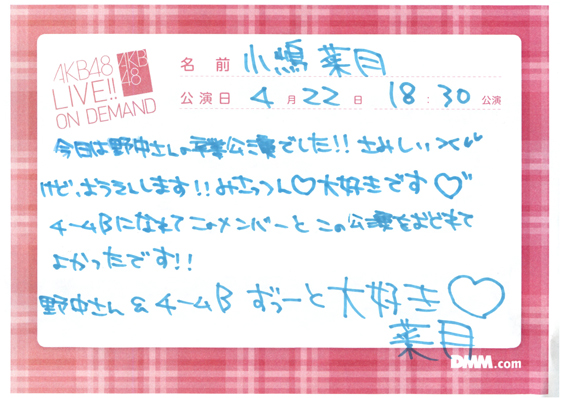 AKB48
LIVE!!
ON DEMAND
AKB
48
名 前 小嶋 菜月
公演日 4 月 22 日 18 : 30 公演
今日は野中さんの卒業公演でした!! さみしい
けど、おうえんします!! みさっつん♡大好きです♡
チームBになれてこのメンバーとこの公演をおどれて
よかったです!!
野中さん & チームB ずっーと大好き♡
菜月
DMM.com